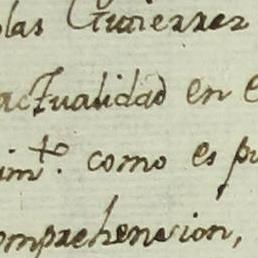 olas Gutierrez
actualidad en e
imto. como es pu
omprehension,